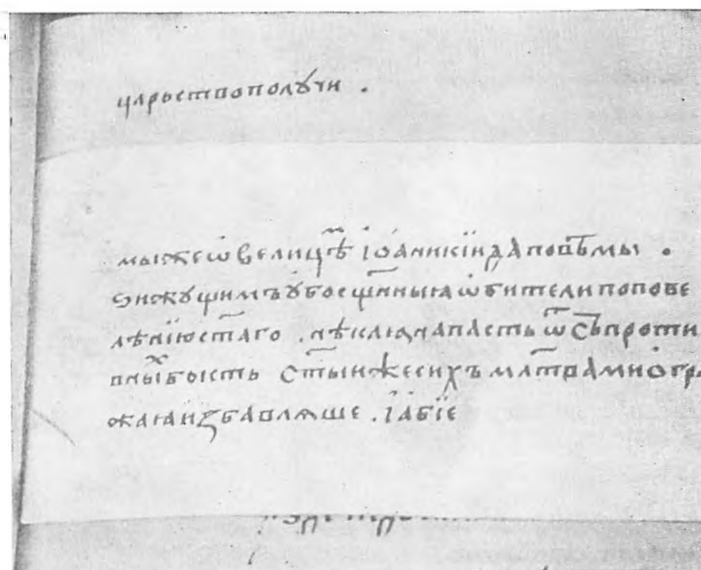 царьствополꙋчи .
мыжеѡвелицѣ іѡаникіидаповѣмы .
ѕижꙋщимъꙋбосщ҃нныѧѡбителипопове
лѣнїюст҃аго . нѣкаѧнапасть ѿсъпроти
внꙑ бысть ст҃ыижесихъ мл҃твамиѻгра
жаѧиꙁбавлѧше . їабїе